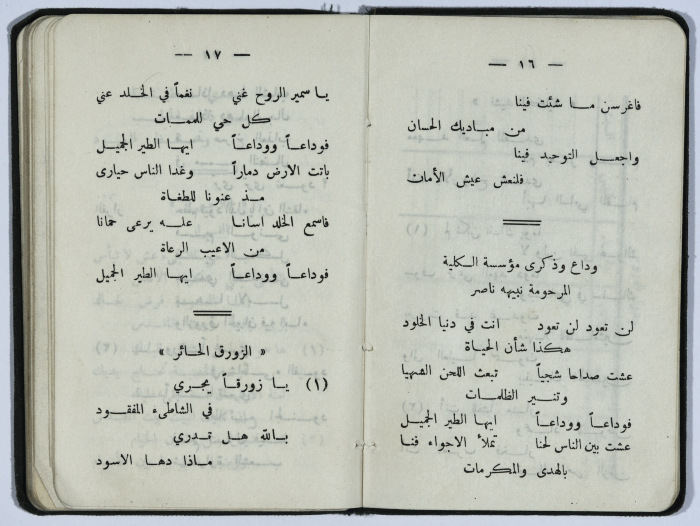 — ١٦ —
فاغرسن مـا شئت فينا
من مباديك الحسان
واجعل التوحيد فينا
فلنعش عيش الأمان
وداع وذكرى مؤسسة الكلية
المرحومة نبيهه ناصر
لن تعود لن تعود انت في دنيا الخلود
هكذا شأن الحياة
عشت صداحا شجياً تبعث اللحن الشهيا
وتنـير الظلمـات
فوداعاً ووداعاً ايها الطير الجميل
عشت بين الناس لحنا تملأ الاجواء فنـا
بالهدى والمكرمات
— ١٧ —
يا سمير الروح غني نغماً في الخلد عني
كل حي للمـات
فوداعـاً ووداعـاً ايهـا الطير الجميل
باتت الارض دماراً وغدا الناس حيارى
مـذ عنونا للطغـاة
فاسمع الخلد اسانـا علـه يرعى حمانا
من الاعيب الرعاة
فوداعـاً ووداعـاً ايهـا الطير الجميل
« الزورق الحـائر »
(١) يـا زورقـاً يجـري
في الشاطىء المفقود
بـالله هـل تـدري
مـاذا دهـا الاسود